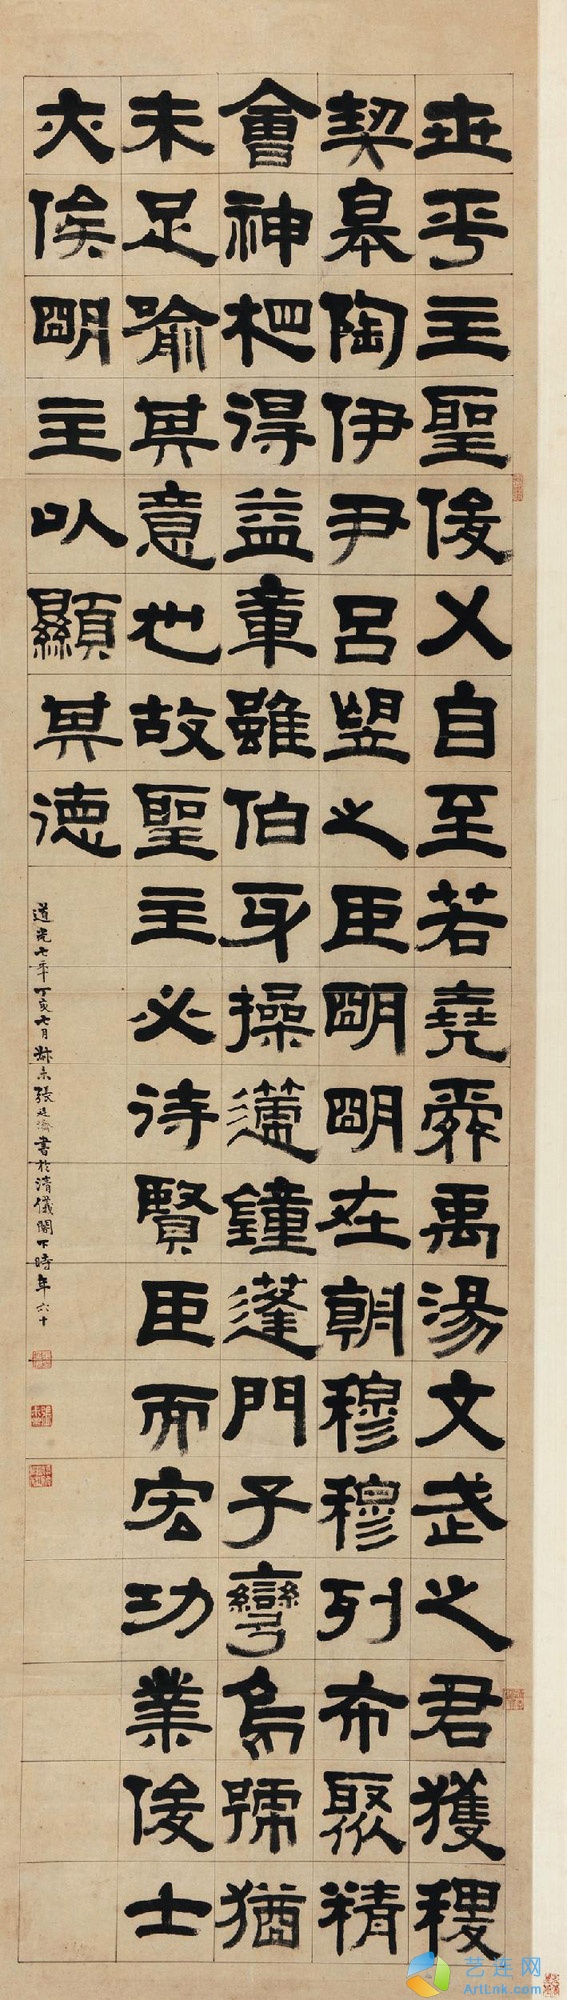 世平主聖俊乂自至若堯舜禹湯文武之君獲稷
契皋陶伊尹呂望之臣明明在朝穆穆列布聚精
會神相得益章雖伯牙操遞鐘蓬門子彎烏號猶
未足喻其意也故聖主必待賢臣而宏功業俊士
亦俟明主以顯其德
道光七年丁亥七月叔未張廷濟書於清儀閣下時年六十
艺连网
ArtLnk.com